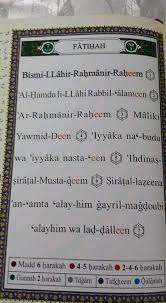 FÂTIḤAH
Bismi-LLâhir-Raḥmânir-Raḥeem
'Al-Ḥamdu li-LLâhi Rabbil-ʿâlameen
'Ar-Raḥmânir-Raḥeem Mâliki
Yawmid-Deen 'Iyyâka na-ʿbudu
wa 'iyyâka nasta-ʿeen 'Ihdinaṣ-
ṣirâṭal-Musta-q̂eem Ṣirâṭal-lazeena
an-ʿamta ʿalay-him ġayril-maġḍoubi
ʿalayhim wa laḍ-ḍâlleen
Madd 6 ḥarakah 4-5 ḥarakah 2-4-6 ḥarakah
Ġunnah 2 ḥarakah 'Idġâm Tafḵheem Qalqalah